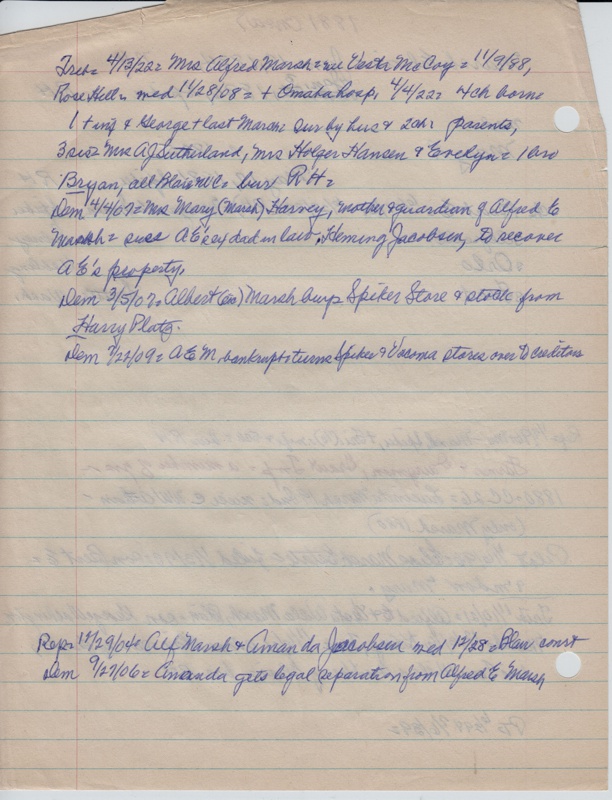 Trib = 4/13/22 = Mrs Alfred Marsh = nee Vesta McCoy = 11/9/88,
Rose Hill = med 11/28/08 = + Omaha hosp, 4/4/22 = 4 ch born =
1 + inf & George + last March = sur by hus & 2 ch, parents,
3 sis = Mrs A J Sutherland, Mrs Holger Hansen & Evelyn = 1 bro
Bryan, all Blair = bur R H =
Dem 4/4/07 = Mrs Mary (Marsh) Harvey, mother & guardian of Alfred E
Marsh = sues A E's ex dad in law, Heming Jacobsen, to recover
A E's property.
Dem 3/5/07 = Albert Marsh buys Spiker Store & stock from
Harry Platz.
Dem 7/22/09 = A E M bankrupt & turns Spiker & Vacoma stores over to creditors
Rep = 12/29/04 = Alf Marsh & Amanda Jacobsen med 12/28 = Blair court
Dem 9/27/06 = Amanda gets legal separation from Alfred E Marsh